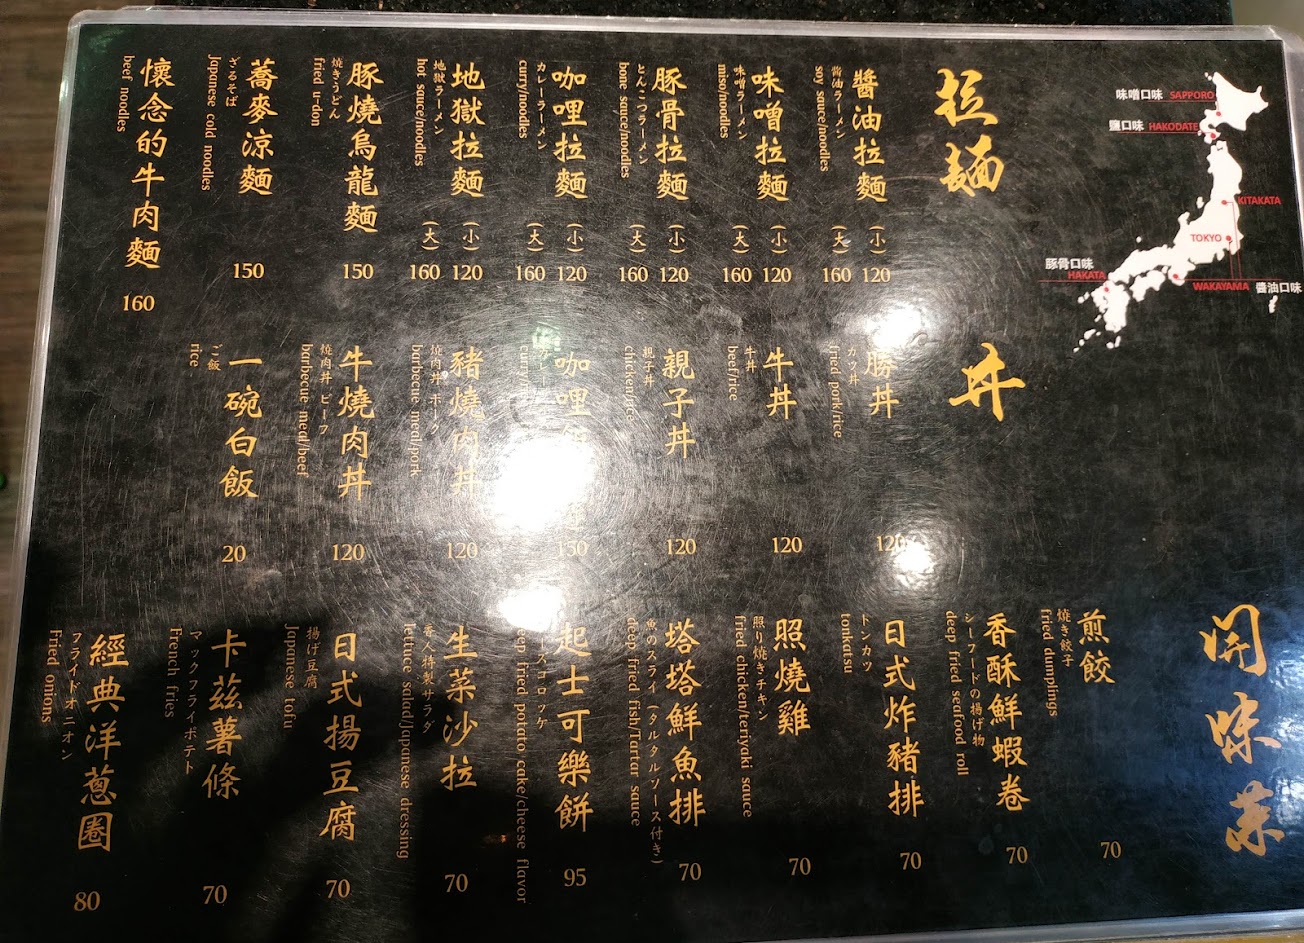 味噌口味 SAPPORO
鹽口味 HAKODATE
KITAKATA
TOKYO
豚骨口味
HAKATA
WAKAYAMA 醬油口味
拉麵
醬油拉麵
醤油ラーメン
soy sauce/noodles
(小) 120
(大) 160
味噌拉麵
味噌ラーメン
miso/noodles
(小) 120
(大) 160
豚骨拉麵
とんこつラーメン
bone sauce/noodles
(小) 120
(大) 160
咖哩拉麵
カレーラーメン
curry/noodles
(小) 120
(大) 160
地獄拉麵
地獄ラーメン
hot sauce/noodles
(小) 120
(大) 160
豚燒烏龍麵
焼きうどん
fried u-lon
150
蕎麥涼麵
ざるそば
Japanese cold noodles
150
懷念的牛肉麵
beef noodles
160
丼
勝丼
カツ丼
fried pork/rice
120
牛丼
牛丼
beef/rice
120
親子丼
親子丼
chicken/rice
120
咖哩
150
豬燒肉丼
焼肉丼 ポーク
barbecue meal/pork
120
牛燒肉丼
焼肉丼 ビーフ
barbecue meal/beef
120
一碗白飯
ご飯
rice
20
開味菜
煎餃
焼き餃子
fried dumplings
70
香酥鮮蝦卷
シーフードの揚げ物
deep fried seafood roll
70
日式炸豬排
トンカツ
tonkatsu
70
照燒雞
照り焼きチキン
fried chicken/teriyaki sauce
70
塔塔鮮魚排
魚のスライ（タルタルソース付き）
deep fried fish/Tartar sauce
70
起士可樂餅
コロッケ
deep fried potato cake/cheese flavor
95
生菜沙拉
香人特製サラダ
lettuce salad/Japanese dressing
70
日式揚豆腐
揚げ豆腐
Japanese tofu
70
卡茲薯條
マックフライポテト
French fries
70
經典洋蔥圈
フライドオニオン
Fried onions
80